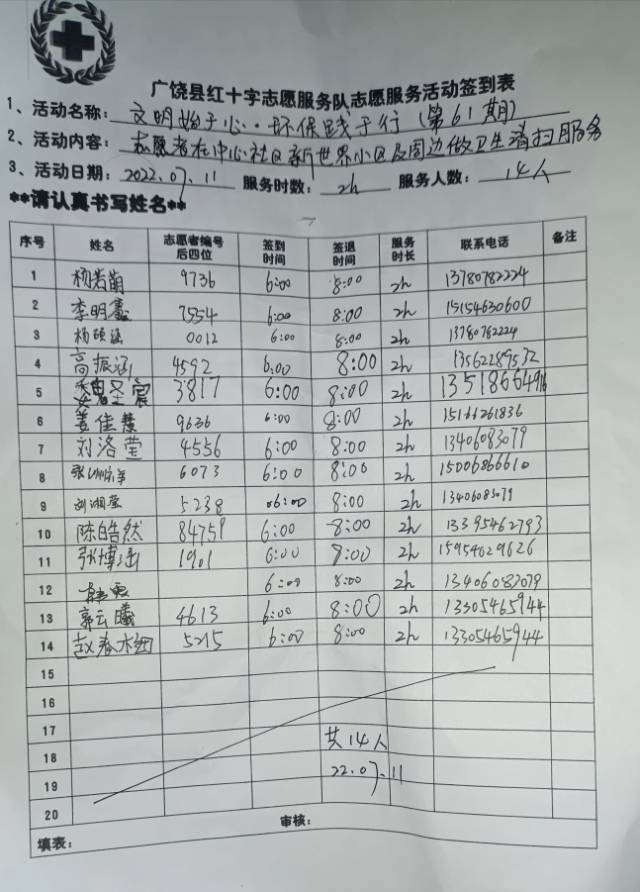 广饶县红十字志愿服务队志愿服务活动签到表
1、活动名称：文明始于心·环保践于行（第61期）
2、活动内容：志愿者在中心社区新世界小区及周边做卫生清扫服务
3、活动日期：2022.07.11 服务时数：2h 服务人数：14人
**请认真书写姓名**
序号 姓名 志愿者编号后四位 签到时间 签退时间 服务时长 联系电话 备注
1 杨若萌 9736 6:00 8:00 2h 13780782224
2 李明鑫 7554 6:00 8:00 2h 15154630600
3 杨硕涵 0012 6:00 8:00 2h 13780782224
4 高振涵 4592 6:00 8:00 2h 13562289532
5 3817 6:00 8:00 2h
6 姜佳慧 9636 6:00 8:00 2h 15161261836
7 刘洛莹 4556 6:00 8:00 2h 13406083079
8 6073 6:00 8:00 2h 15006866610
9 刘湘莹 5238 06:00 8:00 2h 13406083079
10 陈皓然 84759 6:00 8:00 2h 13395462793
11 张博涵 1901 6:00 8:00 2h 15954629626
12 6:00 8:00 2h 13406083079
13 郭云曦 4613 6:00 8:00 2h 13305465944
14 5215 6:00 8:00 2h 13305465944
15
16
17 共14人
18
19 22.07.11
20
填表： 审核：